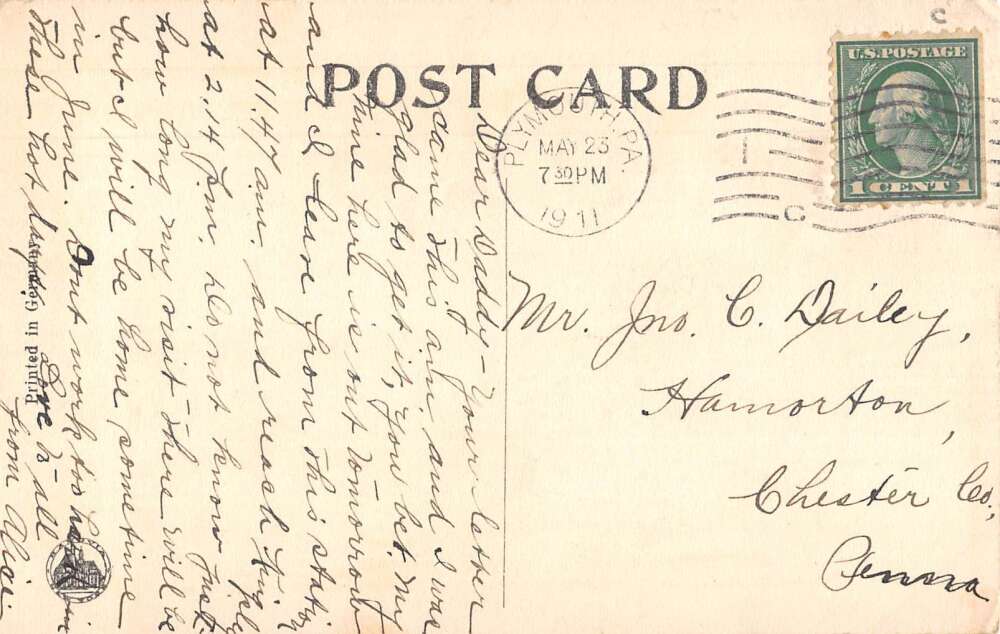 POST CARD
U.S. POSTAGE
1 CENT 1
PLYMOUTH, PA.
MAY 23
7 30 PM
1911
C
Mr. Jno. C. Dailey,
Hamorton,
Chester Co.,
Penna
Dear Daddy - Your letter
came this a.m and I was
glad to get it, you bet. My
time here is out tomorrow
and I leave from this station
at 11.47 a.m. and reach
at 2.14 p.m. Do not know just
how long my visit there will be
but I will be home sometime
in June. Dont work too hard in
these hot days. Love to all
from Alice
Printed in Germany